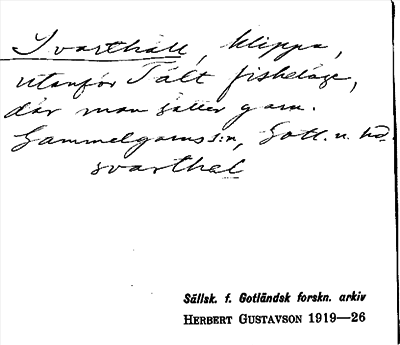 Svarthäll, klippa,
utanför Tält fiskeläge,
där man sätter garn.
Gammelgarns s:n, Gotl. n. hd.
svarthel
Sällsk. f. Gotländsk forskn. arkiv
HERBERT GUSTAVSON 1919—26